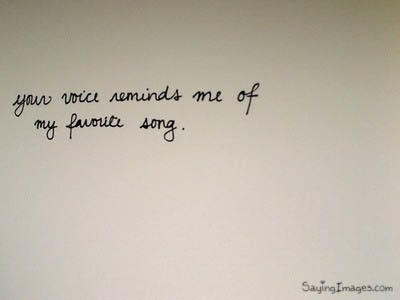 your voice reminds me of
my favorite song.
SayingImages.com